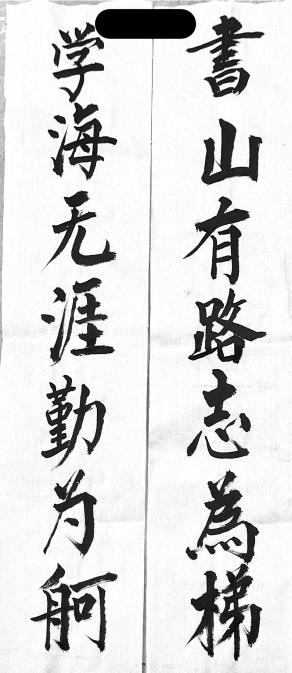 書山有路志為梯
学海无涯勤为舸